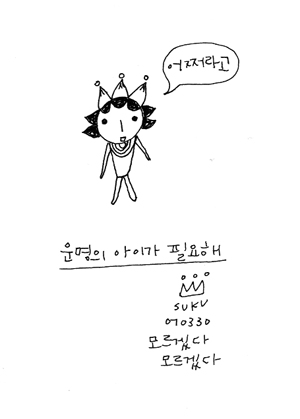 어쩌라고
운명의 아이가 필요해
SUKU
070330
모르겠다
모르겠다